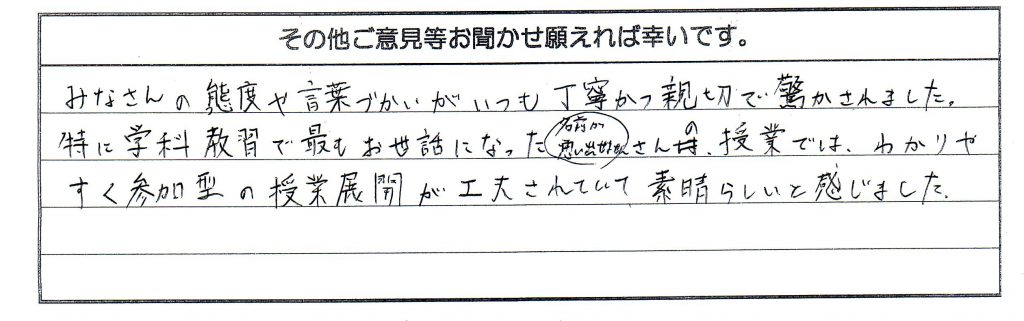 その他ご意見等お聞かせ願えれば幸いです。
みなさんの態度や言葉づかいがいつも丁寧かつ親切で驚かされました。
特に学科教習で最もお世話になった(名前が思い出せません)さんの、授業では、わかりや
すく参加型の授業展開が工夫されていて素晴らしいと感じました。